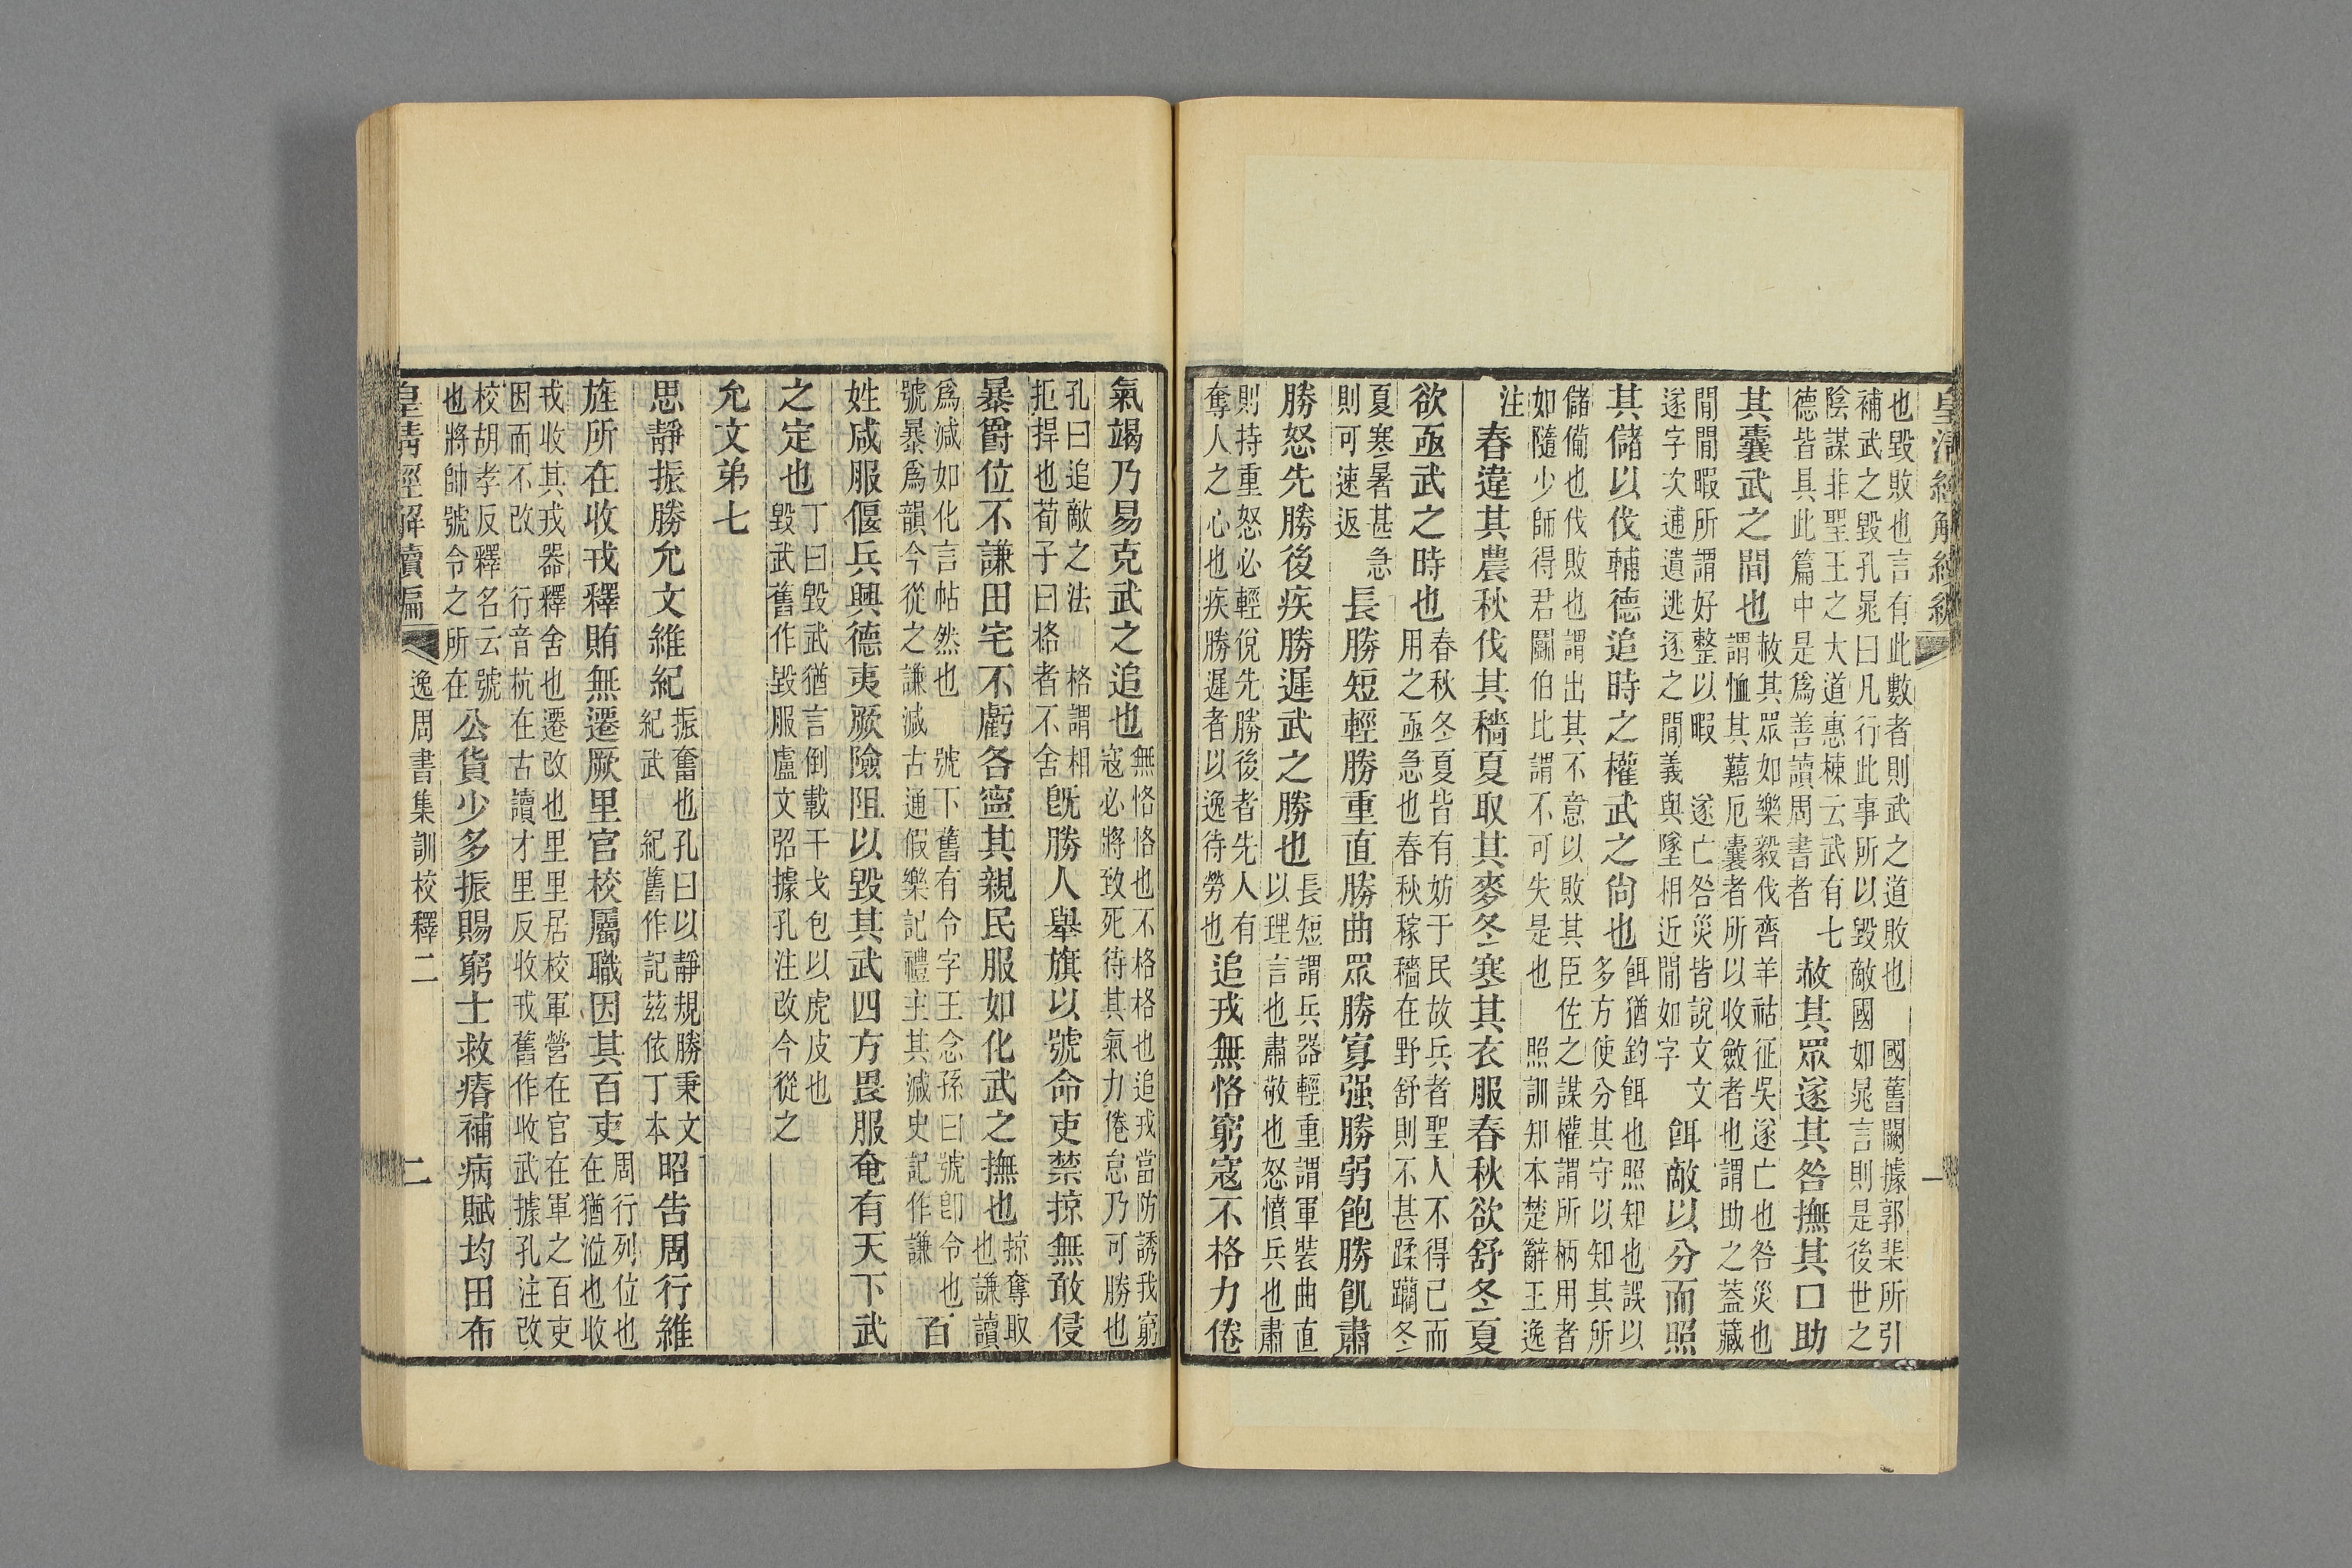 皇清經解續編
一
也毀敗也言有此數者則武之道敗也　國舊闕據郭棐所引
補武之毀孔晁曰凡行此事所以毀敵國如晁言則是後世之
陰謀非聖王之大道惠棟云武有七
德皆具此篇中是爲善讀周書者
赦其眾遂其咎撫其口助
其囊武之間也
赦其眾如樂毅伐齊羊祜征吳遂亡也咎災也
謂恤其囏厄囊者所以收斂者也謂助之蓋藏
閒閒暇所謂好整以暇　遂亡咎災皆說文文
遂字次逋遺逃逐之閒義與墜相近閒如字
餌敵以分而照
其儲以伐輔德追時之權武之尙也
餌猶釣餌也照知也誤以
多方使分其守以知其所
儲僃也伐敗也謂出其不意以敗其臣佐之謀權謂所柄用者
如隨少師得君鬬伯比謂不可失是也　照訓知本楚辭王逸
注
春違其農秋伐其穡夏取其麥冬寒其衣服春秋欲舒冬夏
欲亟武之時也
春秋冬夏皆有妨于民故兵者聖人不得已而
用之亟急也春秋稼穡在野舒則不甚蹂躪冬
夏寒暑甚急
則可速返
長勝短輕勝重直勝曲眾勝寡强勝弱飽勝飢肅
勝怒先勝後疾勝遲武之勝也
長短謂兵器輕重謂軍裝曲直
以理言也肅敬也怒憤兵也肅
則持重怒必輕侻先勝後者先人有
奪人之心也疾勝遲者以逸待勞也
追戎無恪窮寇不格力倦
氣竭乃易克武之追也
無恪恪也不格格也追戎當防誘我窮
寇必將致死待其氣力倦怠乃可勝也
孔曰追敵之法　格謂相
拒捍也荀子曰格者不舍
旣勝人舉旗以號命吏禁掠無敢侵
暴爵位不謙田宅不虧各寧其親民服如化武之撫也
掠奪取
也謙讀
爲減如化言帖然也　號下舊有令字王念孫曰號卽令也
號暴爲韻今從之謙減古通假樂記禮主其減史記作謙
百
姓咸服偃兵興德夷厥險阻以毀其武四方畏服奄有天下武
之定也
丁曰毀武猶言倒載干戈包以虎皮也
毀武舊作毀服盧文弨據孔注改今從之
允文弟七
思靜振勝允文維紀
振奮也孔曰以靜規勝秉文
紀武　紀舊作記茲依丁本
昭告周行維
旌所在收戎釋賄無遷厥里官校屬職因其百吏
周行列位也
在猶涖也收
戎收其戎器釋舍也遷改也里里居校軍營在官在軍之百吏
因而不改　行音杭在古讀才里反收戎舊作收武據孔注改
校胡孝反釋名云號
也將帥號令之所在
公貨少多振賜窮士救瘠補病賦均田布
皇清經解續編
逸周書集訓校釋二
二